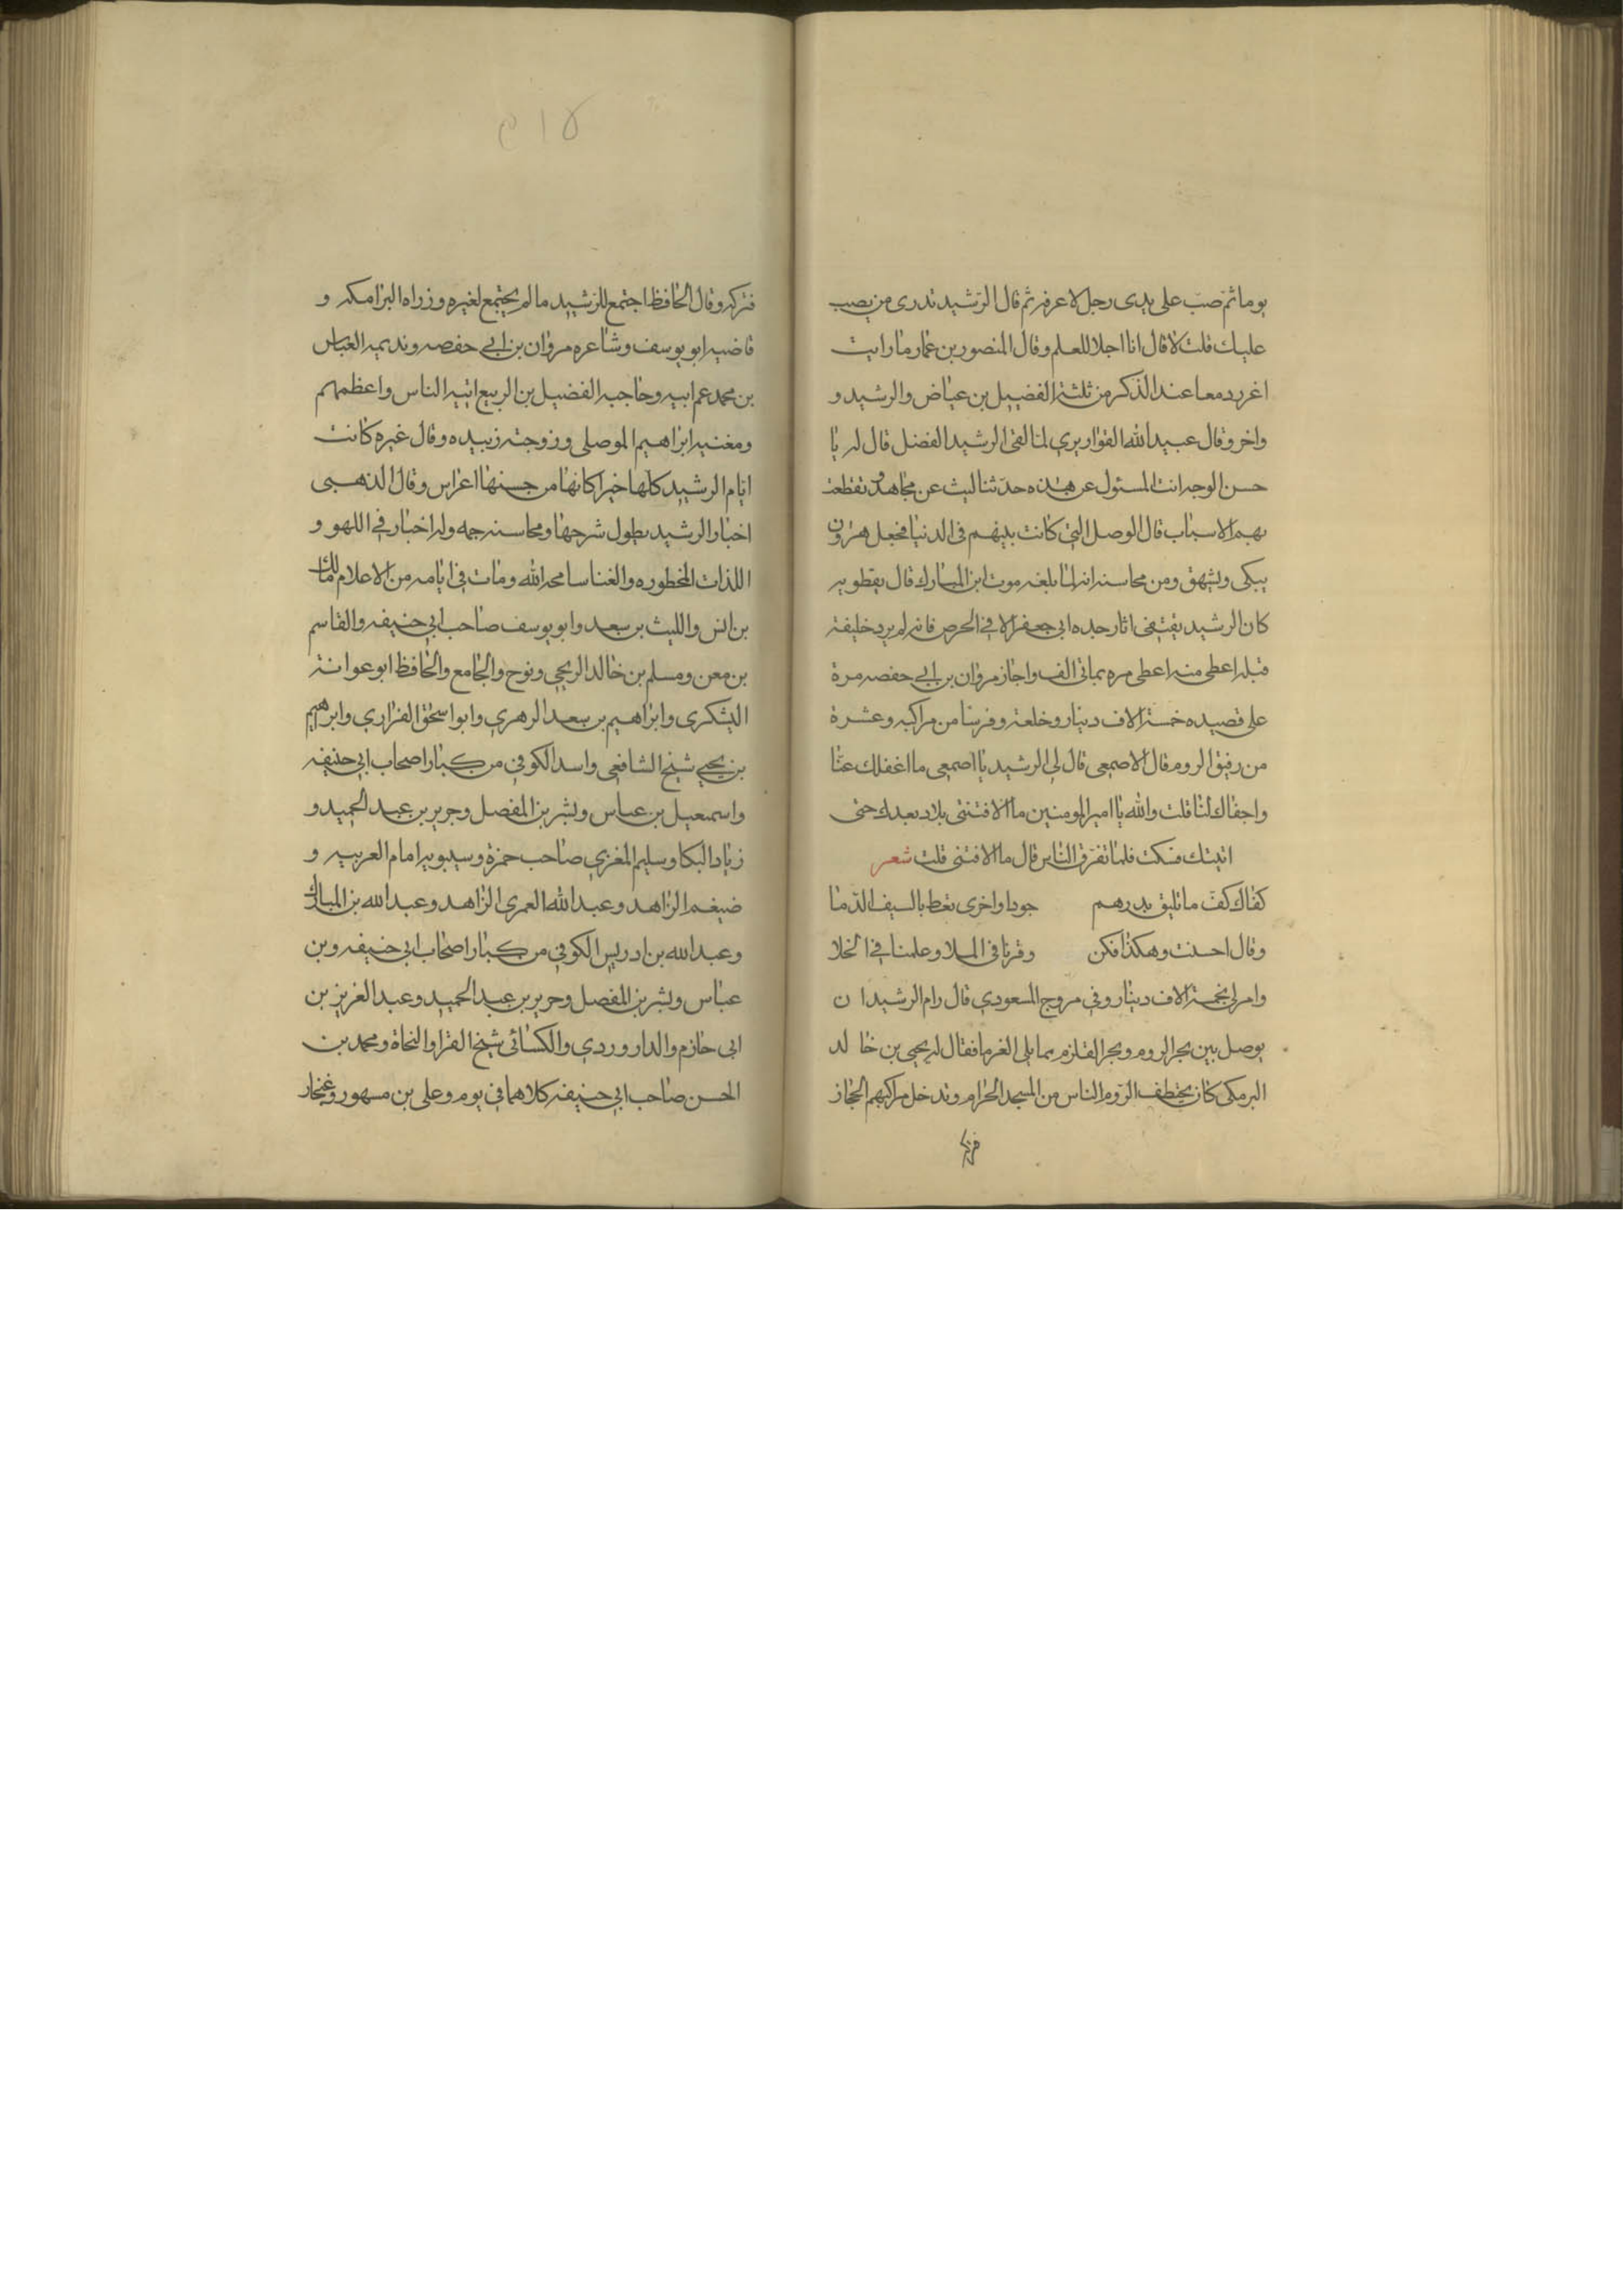 يوما ثم صب على يدى رجل لا عرفه ثم قال الرشيد تدرى من يصب
عليك قلت لا قال انا اجلا للعلم وقال المنصور بن عمار ما رايت
اغرر دمعا عند الذكر من ثلثة الفضيل بن عياض والرشيد و
واخر وقال عبيد الله القواريري لما لقى الرشيد الفضل قال له يا
حسن الوجه انت المسئول عن هذه حدثنا ليث عن مجاهد وتقطعت
بهم الاسباب قال الوصل التي كانت بينهم فى الدنيا فجعل هرون
يبكى ويشهق ومن محاسنه انه لما بلغه موت ابن المبارك قال نفطويه
كان الرشيد يقتفى اثار جده ابى جعفر الا في الحرص فانه لم ير خليفة
قبله اعطى منه اعطى مره بماتى الف واجاز مروان بن ابى حفصه مرة
على قصيده خمسة الاف دينار وخلعة وفرسا من مراكبه وعشرة
من رقيق الروم قال الاصمعى قال لى الرشيد يا اصمعى ما اغفلك عنا
واجفاك لنا قلت والله يا امير المومنين ما الاقتنى بلاد بعدك حتى
اتيتك فسكت فلما تفرق الناس قال ما الاقتنى قلت شعر
كفاك كف ما تليق بدرهم جودا واخرى تعط بالسيف الدما
وقال احسنت وهكذا فكن وقرنا فى الملا وعلمنا فى الخلا
وامر لى بخمسة الاف دينار وفي مروج المسعودي قال رام الرشيد ان
يوصل بين بحر الروم وبحر القلزم مما يلى الفرما فقال له يحيى بن خالد
البرمكى كان يختطف الروم الناس من المسجد الحرام وتدخل مراكبهم الحجاز
فتركه
١٥م
فتركه وقال الحافظ اجتمع للرشيد ما لم يجتمع لغيره وزراه البرامكه و
قاضيه ابو يوسف وشاعره مروان بن ابى حفصه ونديمه العباس
بن محمد عم ابيه وحاجبه الفضيل بن الربيع اتيه الناس واعظمهم
ومغنيه ابراهيم الموصلى وزوجته زبيده وقال غيره كانت
ايام الرشيد كلها خير كانها من حسنها اعراس وقال الذهبى
اخبار الرشيد يطول شرحها ومحاسنه جمه وله اخبار في اللهو و
اللذات المحظوره والغنا سامحه الله ومات فى ايامه من الاعلام مالك
بن انس والليث بن سعد وابو يوسف صاحب ابي حنيفه والقاسم
بن معن ومسلم بن خالد الزنجى ونوح والجامع والحافظ ابو عوانة
اليشكرى وابراهيم بن سعد الزهري وابو اسحق الفزاري وابرهيم
بن يحيى شيخ الشافعى واسد الكوفي من كبار اصحاب ابى حنيفه
واسمعيل بن عباس وبشر بن المفصل وجرير بن عبد الحميد و
زياد البكا وسليم المغزي صاحب حمزة وسيبويه امام العربيه و
ضيغم الزاهد وعبد الله العمرى الزاهد وعبد الله بن المبارك
وعبد الله بن ادريس الكوفي من كبار اصحاب ابى حنيفه وبن
عباس وبشر بن المفصل وجرير بن عبد الحميد وعبد العزيز بن
ابى حازم والداروردي والكسائى شيخ القرا والنحاة ومحمد بن
الحسن صاحب ابى حنيفه كلاهما في يوم وعلى بن مسهور وغنجار